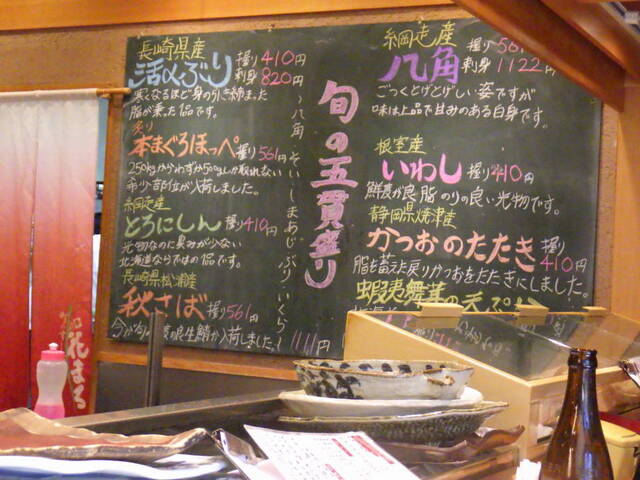 長崎県産
活〆ぶり 握り410円
刺身820円
寒くなるほど身の引き締まった
脂が乗った一品です。
炙り
本まぐろほっぺ 握り561円
250kgからわずか500gしか取れない
希少部位が入荷しました。
網走産
とろにしん 握り410円
光物なのに臭みが少ない
北海道ならではの一品です。
長崎県松浦産
秋さば 握り561円
入荷しました。
旬の五貫盛り
〜八角 そい しまあじ ぶり いくら〜
1111円
網走産
八角 握り561
刺身1122円
ごっくとげとげしい姿ですが
味は上品で甘みのある白身です。
根室産
いわし 握り410円
鮮度が良 脂のりの良い光物です。
静岡県焼津産
かつおのたたき 握り
410円
脂を蓄えた戻りかつおをたたきにしました。
蝦夷舞茸の天ぷら
花まる